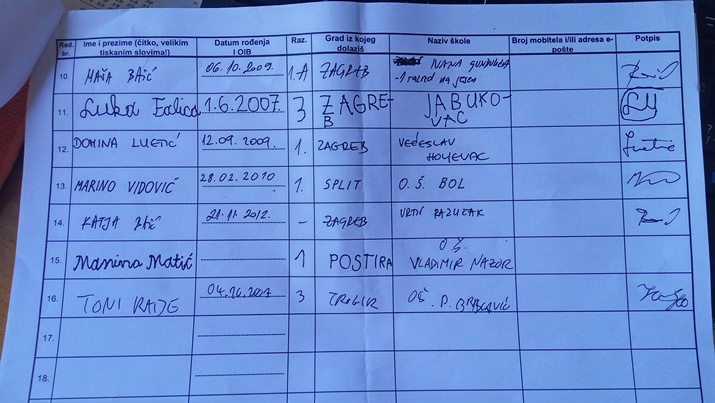 Red. br. Ime i prezime (čitko, velikim tiskanim slovima!) Datum rođenja i OIB Raz. Grad iz kojeg dolaziš Naziv škole Broj mobitela i/ili adresa e-pošte Potpis
10. MAŠA BAIĆ 06.10.2009. 1.A ZAGREB
11. Luka 1.6.2007 3 ZAGRE-B JABUKO-VAC
12. DOMINA 12.09.2009. 1. ZAGREB VEĆESLAV HOLJEVAC
13. MARINO VIDOVIĆ 28.02.2010 1. SPLIT O.Š. BOL
14. KATJA 21.11.2012. - ZAGREB VRTIĆ
15. Manina Matić 1 POSTIRA OŠ VLADIMIR NAZOR
16. TONI 3 TROGIR OŠ. P.
17.
18.